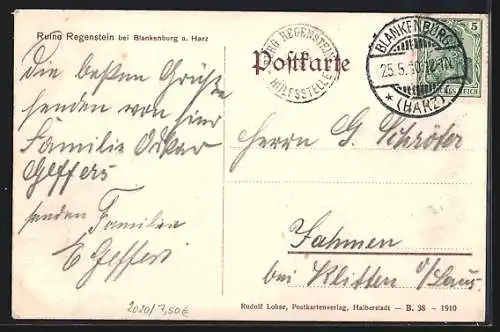 Ruine Regenstein bei Blankenburg a. Harz
BURG REGENSTEIN
HILFSSTELLE
Postkarte
BLANKENBURG
25.5.10.12-1N.
* (HARZ)
5
DEUTSCHES REICH
Die besten Grüße
senden von hier
Familie Oskar
Geffers
senden Familie
E Geffers
Herrn G. Schröter
Jahmen
bei Klitten O/Laus.
2020/7,50€
Rudolf Lohse, Postkartenverlag, Halberstadt — B. 38 - 1910